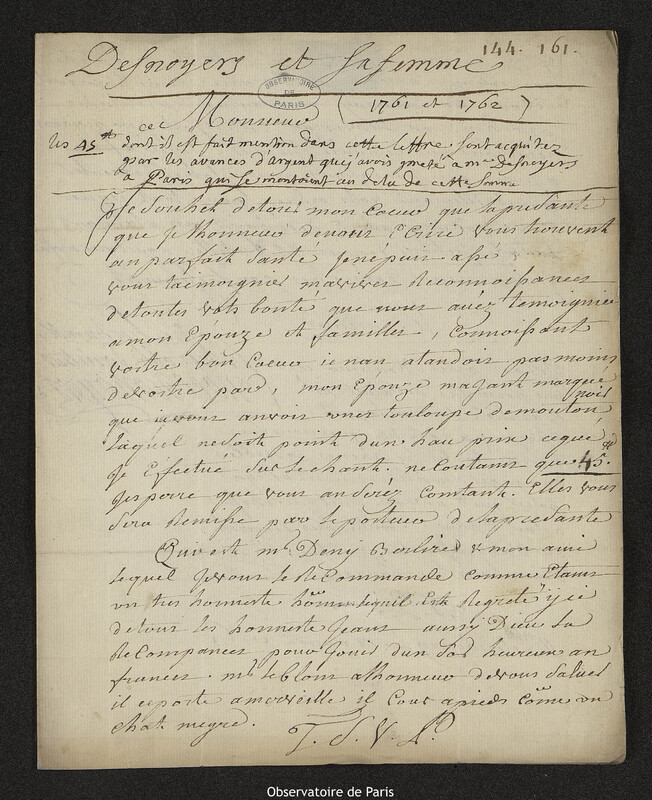 144. 161.
Desnoyers et sa femme
OBSERVATOIRE DE PARIS
Monsieur (1761 et 1762)
les 45 dont il est fait mention dans cette lettre sont acquitez
par les avances d'argent que j'avois preté a me Desnoyers
a Paris qui se montoient au dela de cette somme
Je souhet de tout mon coeur que la presante
que je lhonneur de vous Ecrire vous trouvent
an parfait santé je népuis assé
vous taimoignier mavives Reconnoissances
de toutes vos bonté que vous avez temoignier
a mon Epouze et familles, Connoissant
vostre bon Coeur je nan atandois pas moins
de vostre pard, mon Epouze majant marquée
que je vous anvoir unes touloupe de mouton noir
laquel ne soit point dun hau prix ceque
Je Effectué sur le chant. ne Coutant que 45.
Jesperre que vous an Seréz Contant. Elles vous
sera Remisse par le porteur de la presante
Qui est mr Deny mon ami
lequel je vous le ReCommande comme Etant
un tres honneste home lequil est Regreté ycie
de tout les honneste Jeans aussy Dieu la
ReCompances pour Jouir dun Sor heureux an
frances. mr leblom a lhonneur de vous Saluer
il ce porte a merveille il Cour a pieds Come un
Chat megre.
T. S. V. P.
Observatoire de Paris